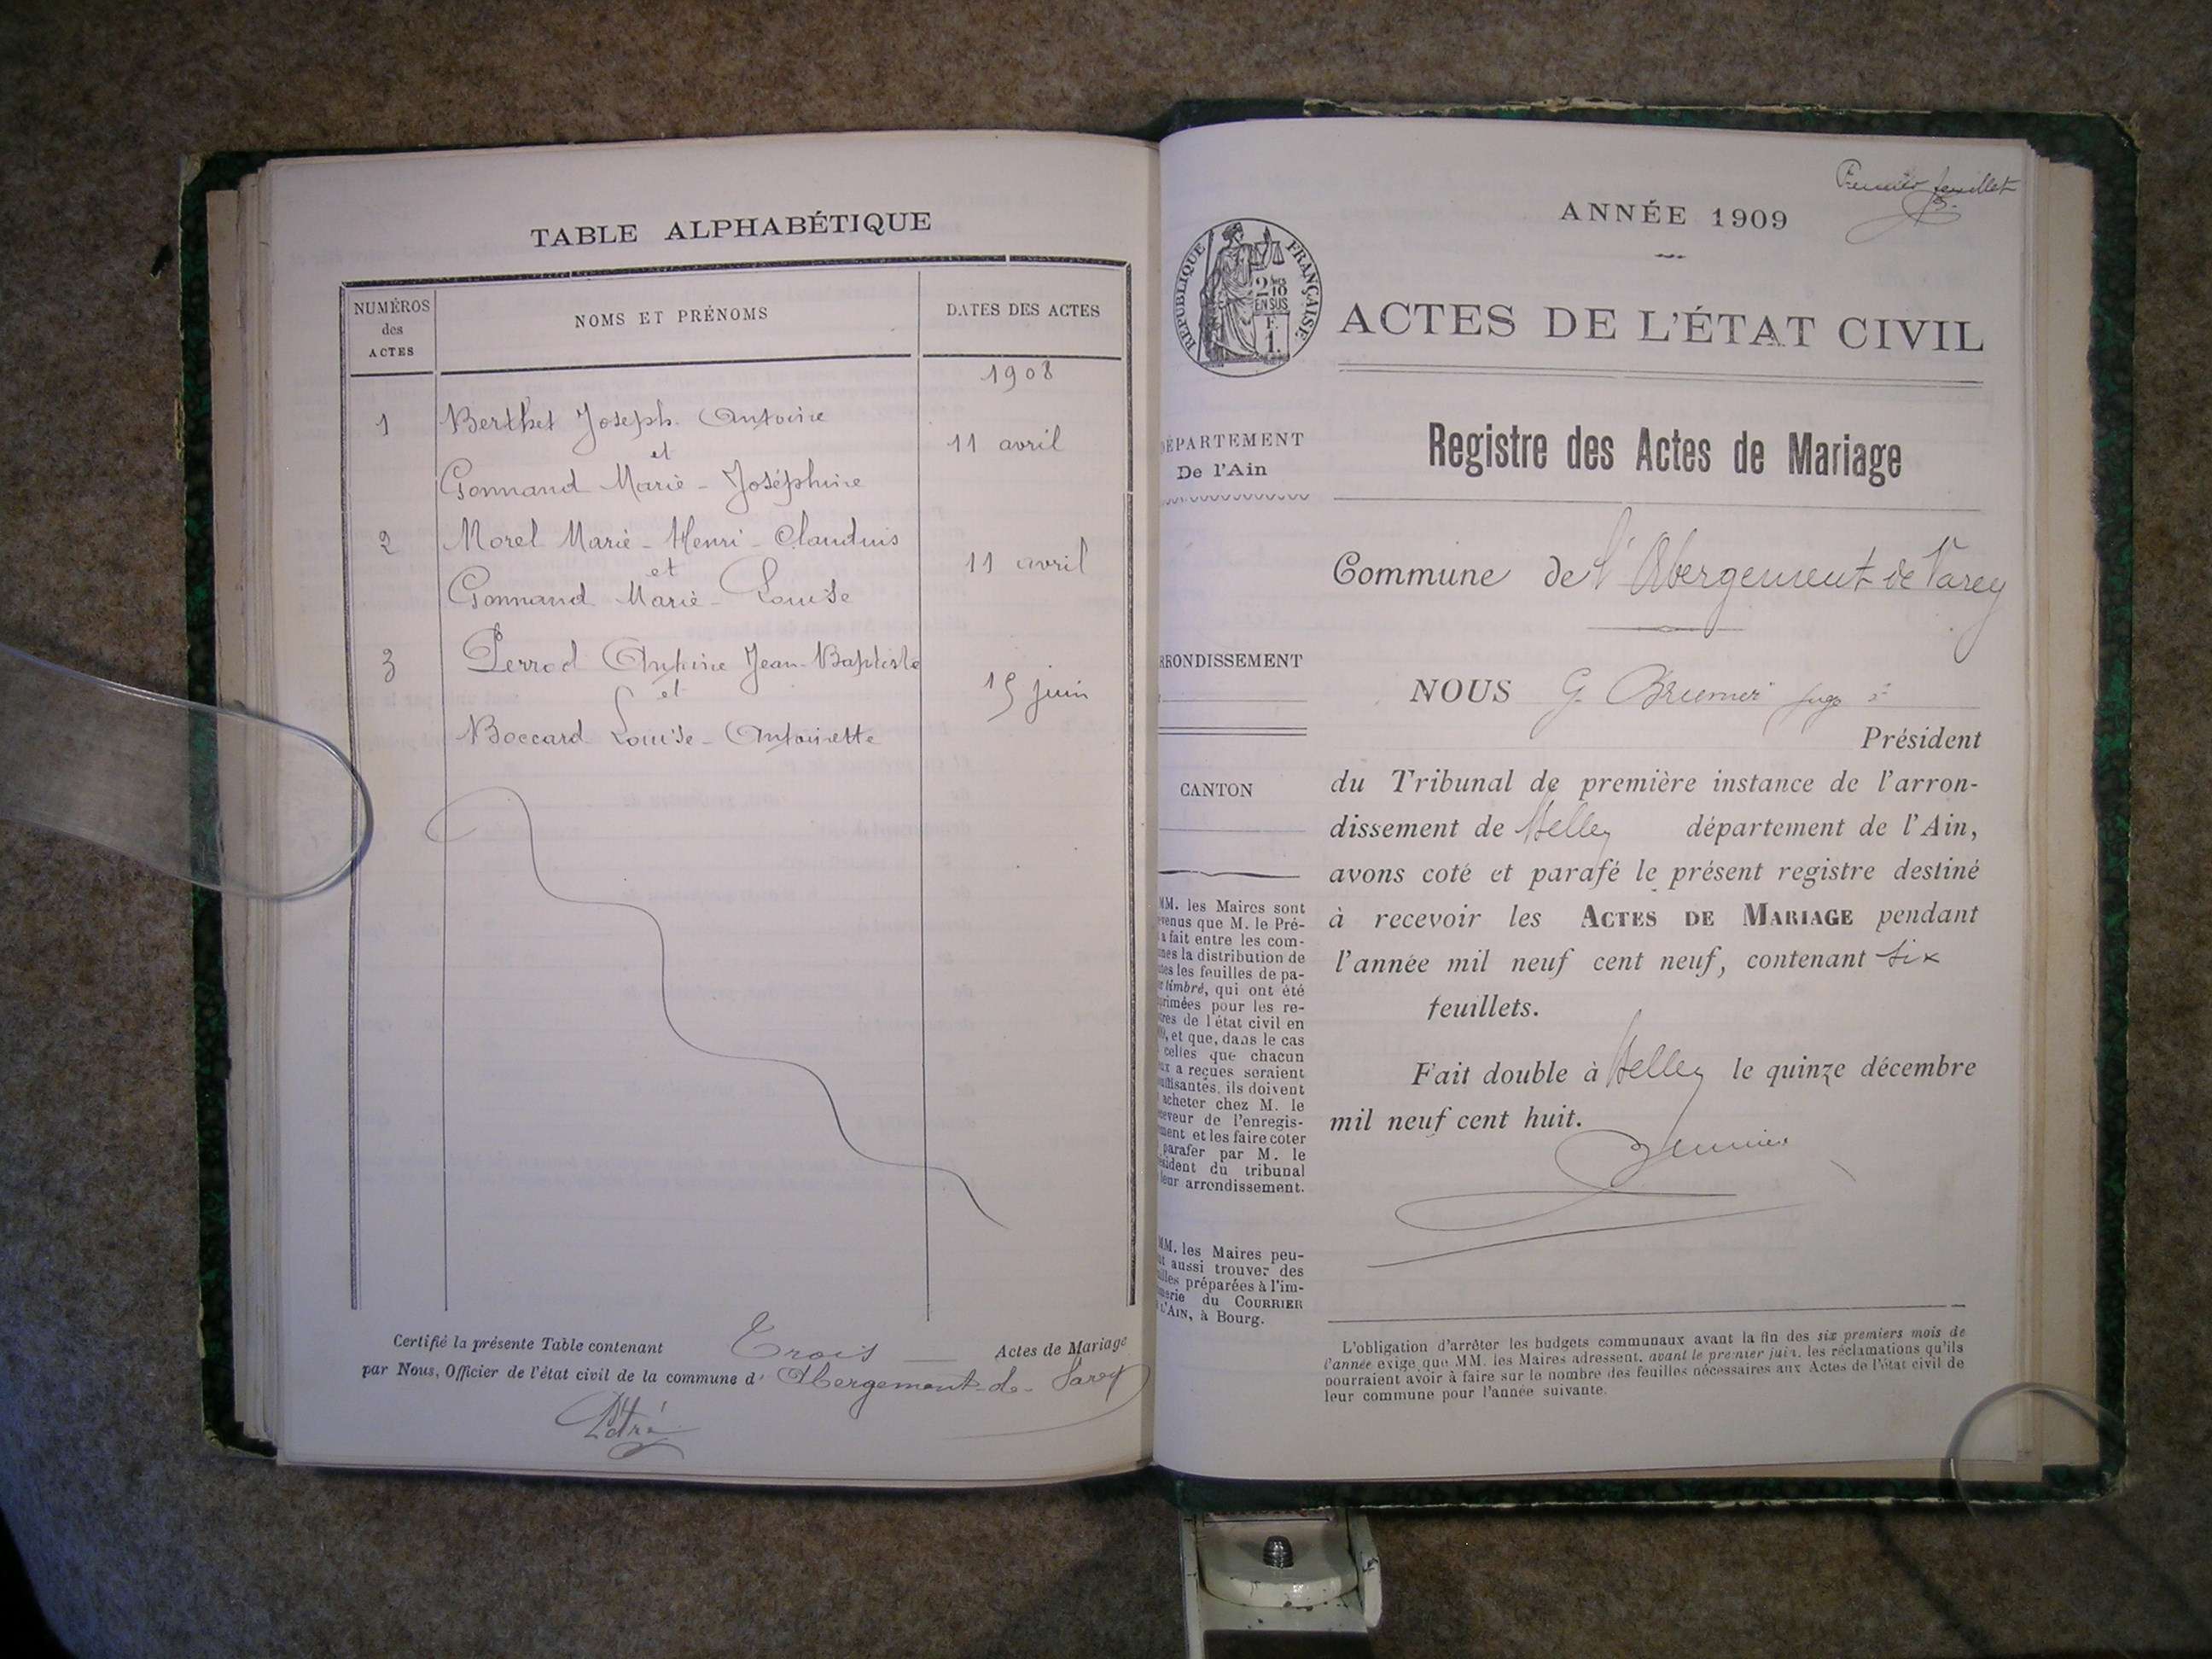 TABLE ALPHABÉTIQUE
NUMÉROS
des
ACTES
NOMS ET PRÉNOMS
DATES DES ACTES
1908
1
Berthet Joseph Antoine
et
11 avril
Gonnand Marie-Joséphine
2
Morel Marie-Henri-Claudius
et
11 avril
Gonnand Marie-Louise
3
Perrod Antoine Jean-Baptiste
et
15 juin
Boccard Louise-Antoinette
Certifié la présente Table contenant Trois Actes de Mariage
par Nous, Officier de l'état civil de la commune d' Abergement-de-Varey
Premier feuillet
ANNÉE 1909
RÉPUBLIQUE FRANÇAISE
2/10
EN SUS
F.
1.
ACTES DE L'ÉTAT CIVIL
DÉPARTEMENT
De l'Ain
Registre des Actes de Mariage
Commune de l'Abergement de Varey
RRONDISSEMENT
NOUS G. Brunier juge
Président
CANTON
du Tribunal de première instance de l'arron-
dissement de Belley département de l'Ain,
avons coté et parafé le présent registre destiné
à recevoir les ACTES DE MARIAGE pendant
l'année mil neuf cent neuf, contenant six
feuillets.
Fait double à Belley le quinze décembre
mil neuf cent huit.
Brunier
MM. les Maires sont
venus que M. le Pré-
a fait entre les com-
nes la distribution de
es les feuilles de pa-
r timbré, qui ont été
primées pour les re-
res de l'état civil en
9, et que, dans le cas
celles que chacun
ux a reçues seraient
uffisantes, ils doivent
acheter chez M. le
ceveur de l'enregis-
ment et les faire coter
parafer par M. le
sident du tribunal
leur arrondissement.
MM. les Maires peu-
t aussi trouver des
illes préparées à l'im-
merie du COURRIER
L'AIN, à Bourg.
L'obligation d'arrêter les budgets communaux avant la fin des six premiers mois de
l'année exige que MM. les Maires adressent, avant le premier juin, les réclamations qu'ils
pourraient avoir à faire sur le nombre des feuilles nécessaires aux Actes de l'état civil de
leur commune pour l'année suivante.